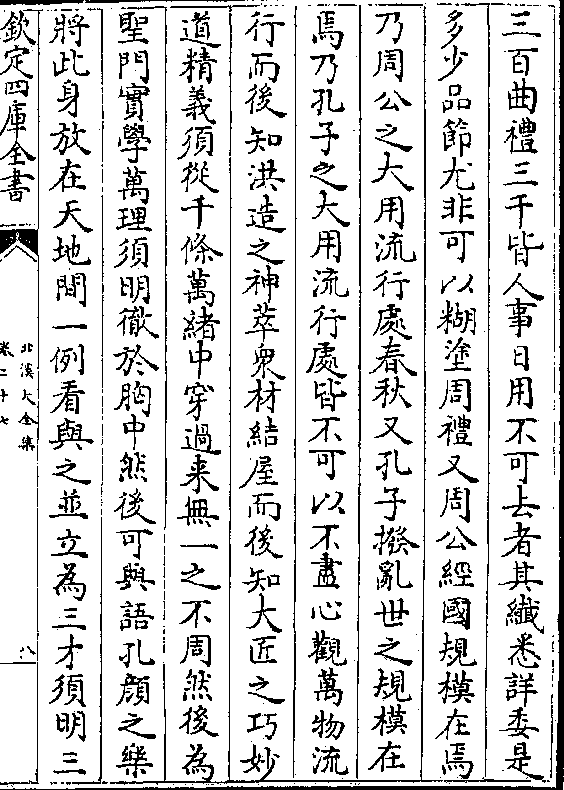 三百曲禮三千皆人事日用不可去者其纖悉詳委是
多少品節尤非可以糊塗周禮又周公經國規模在焉
乃周公之大用流行處春秋又孔子撥亂世之規模在
焉乃孔子之大用流行處皆不可以不盡心觀萬物流
行而後知洪造之神萃衆材結屋而後知大匠之巧妙
道精義須從千條萬緒中穿過来無一之不周然後為
聖門實學萬理須明徹於胸中然後可與語孔顔之樂
將此身放在天地間一例看與之並立為三才須明三
欽定四庫全書
北溪大全集
卷二十七
八